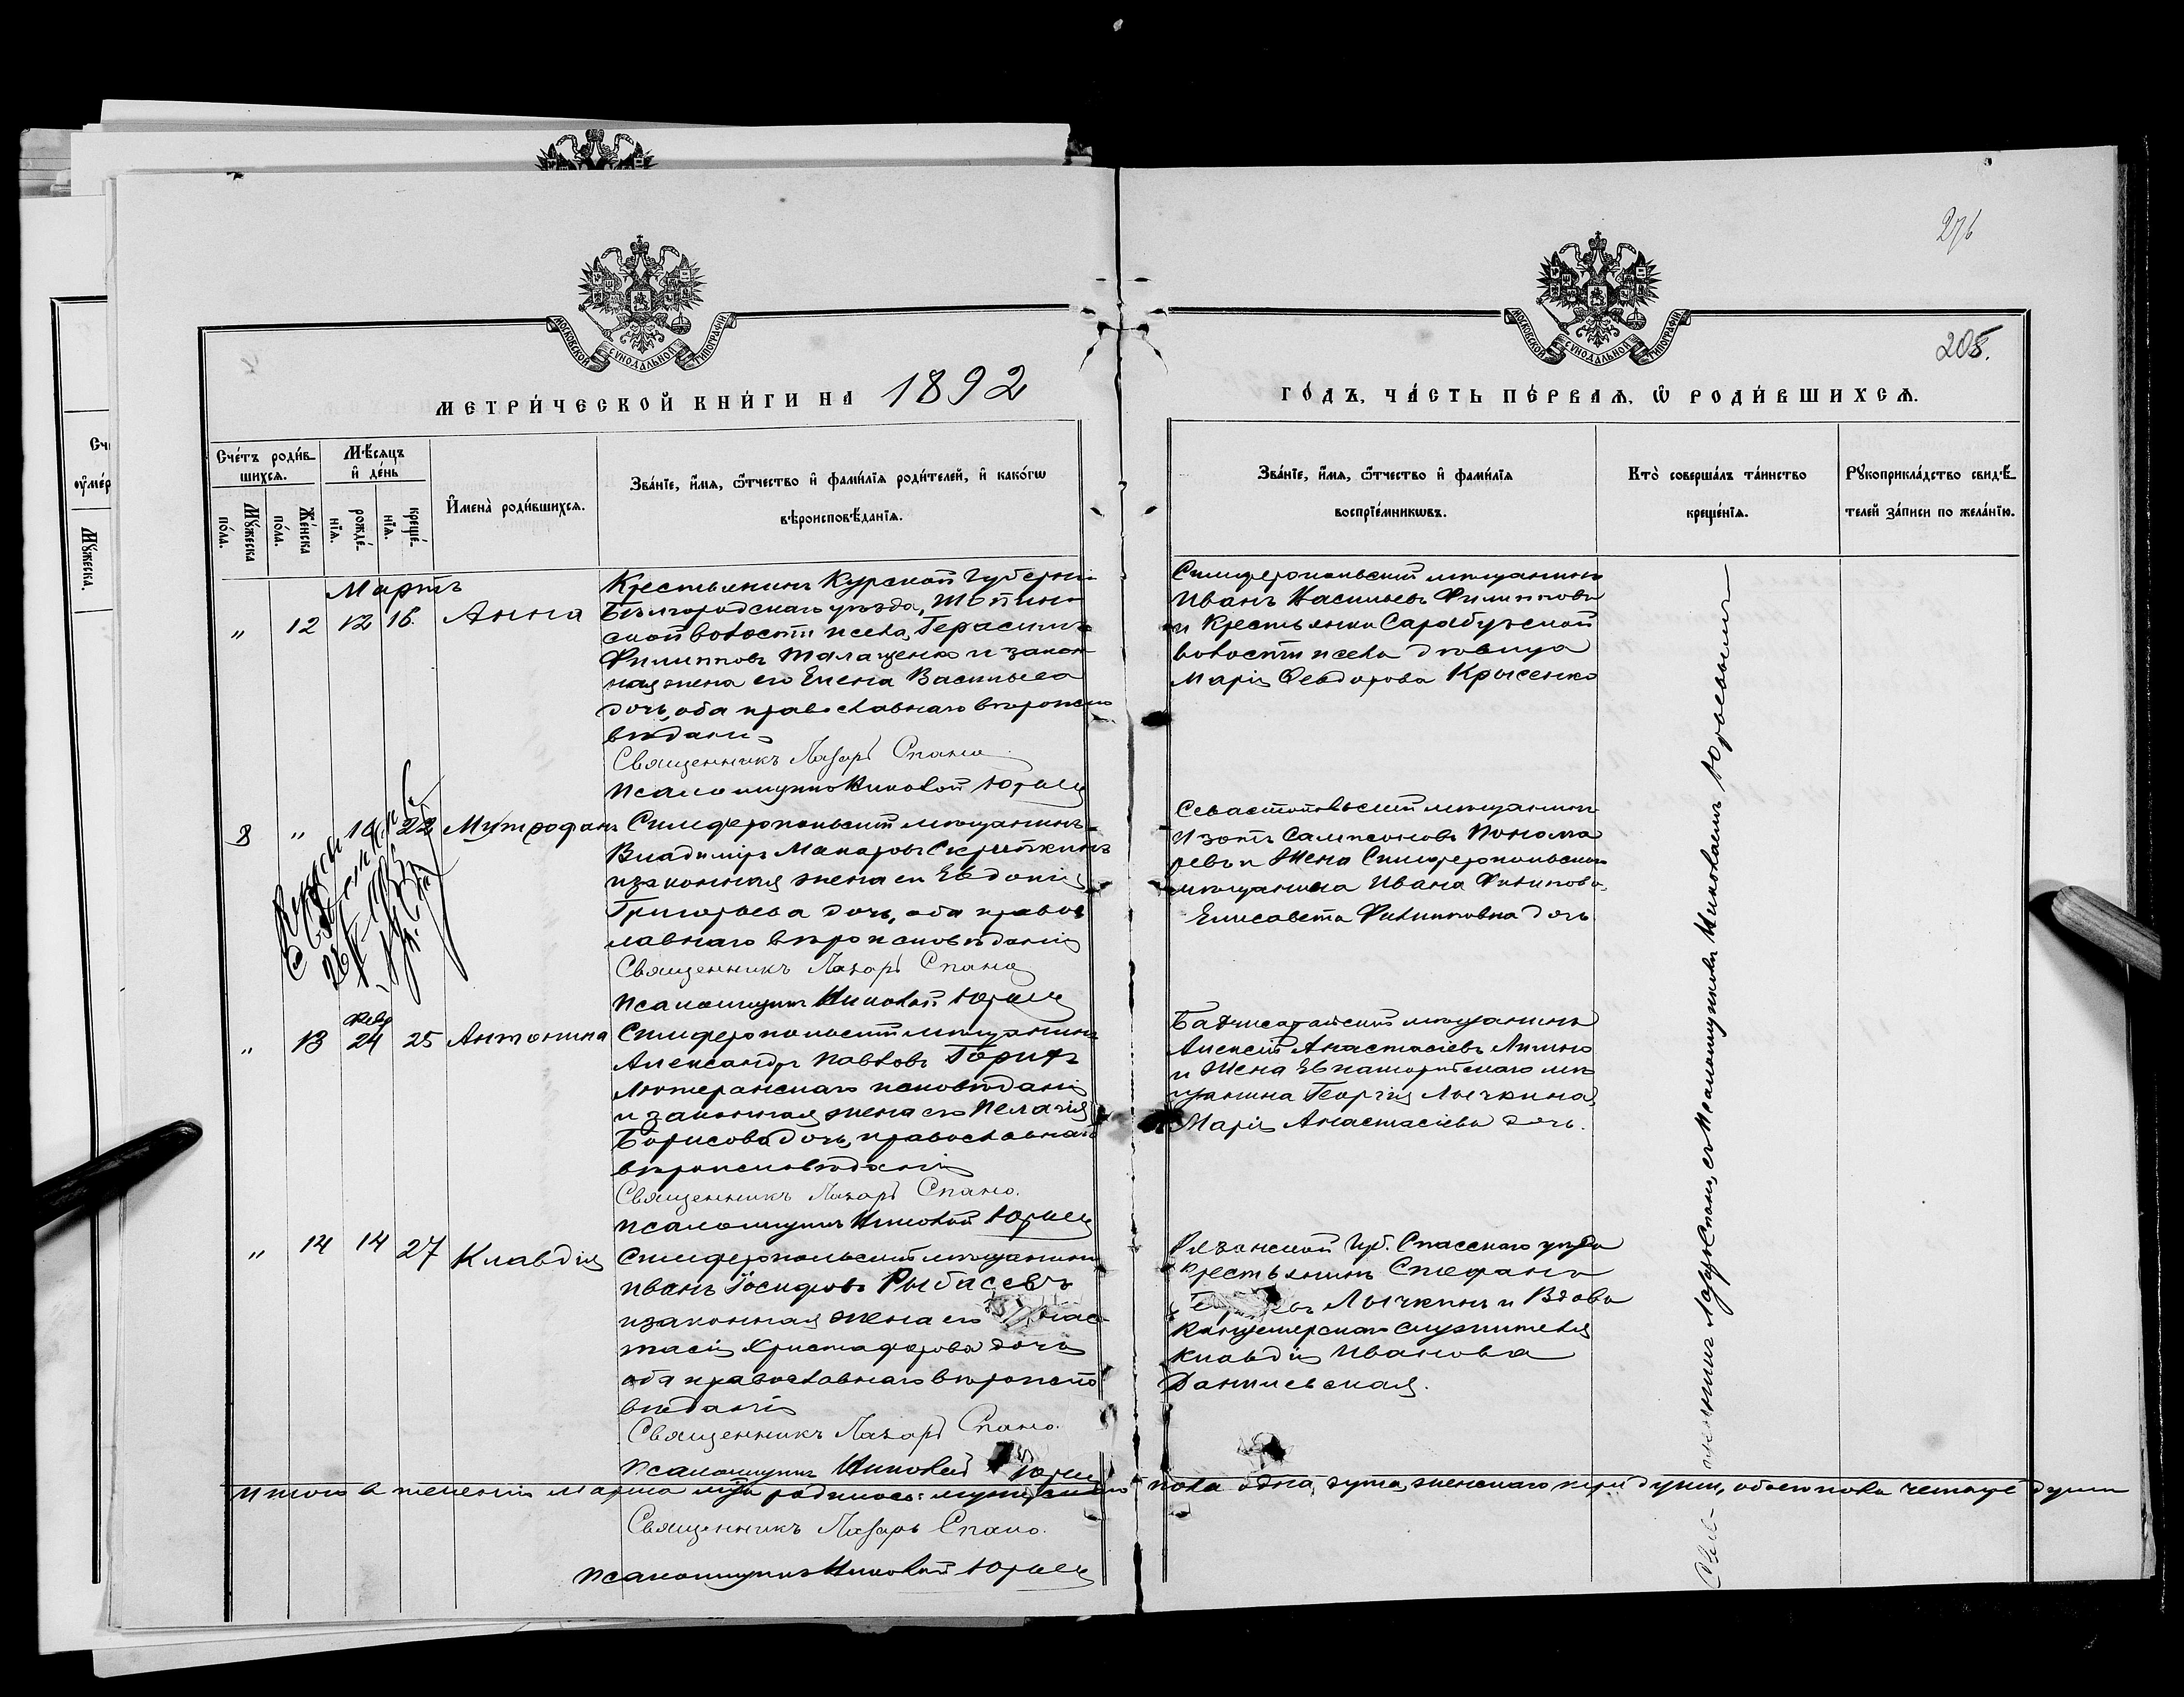 276
205.
МОСКОВСКОЙ СѴНОДАЛЬНОЙ ТИПОГРАФІИ
МОСКОВСКОЙ СѴНОДАЛЬНОЙ ТИПОГРАФІИ
МЕТРИ́ЧЕСКОЙ КНИ́ГИ НА 1892
ГО́ДЪ, ЧА́СТЬ ПЕ́РВАѦ, Ѿ РОДИ́ВШИХСѦ.
Сче́тъ роди́в-
шихсѧ.
Мꙋ́жеска
по́ла.
Же́нска
по́ла.
Мѣ́сѧцъ
и҆ де́нь
рожде́-
нїѧ.
креще́-
нїѧ.
И҆мена̀ роди́вшихсѧ.
Зва́нїе, и҆́мѧ, ѻ҆́тчество и҆ фами́лїѧ роди́телей, и҆ како́гѡ
вѣроисповѣ́данїѧ.
Зва́нїе, и҆́мѧ, ѻ҆́тчество и҆ фами́лїѧ
воспрїе́мникѡвъ.
Кто̀ соверша́лъ та́инство
креще́нїѧ.
Рꙋкоприкла́дство свидѣ́-
телей за́писи по жела́нїю.
Мартъ
" 12 12 15. Анна
Крестьянинъ Курской губерні
Бѣлгородскаго уѣзда,
ской волости и села, Герасимъ
Филипповъ Талащенко и закон
ная жена его Елена Васильева
дочь, оба православнаго вѣроиспо
вѣданія
Священникъ Лазарь Спано
Псаломщикъ Николай Юрьев
Симферопольскій мѣщанинъ
Иванъ Васильевъ Филипповъ
и Крестьянка Сарабузской
волости и села дѣвица
Марія Ѳеодорова Крысенко
8 " 19 22 Митрофанъ
Симферопольскій мѣщанинъ
Владиміръ Макаровъ Скрипкинъ
и законная жена его Евдокія
Григорьева дочь, оба правос
лавнаго вѣроисповѣданія
Священникъ Лазарь Спано
Псаломщикъ Николай Юрьев
Севастопольскій мѣщанинъ
Изотъ Сампсоновъ Понома
ревъ и Жена Симферопольскаго
мѣщанина Ивана Филипова
Елисавета Филипповна дочь
" 13 Февр 24 25 Антонина
Симферопольскій мѣщанинъ
Александръ Павловъ
Лютеранскаго исповѣданія
и законная жена его Пелагія
Борисова дочь, православнаго
вѣроисповѣданія
Священникъ Лазарь Спано.
Псаломщикъ Николай Юрьев
Бахчисарайскій мѣщанинъ
Алексій Анастасіевъ
и Жена Евпаторійскаго мѣ
щанина Георгія Лычкина,
Марія Анастасіева дочь.
" 14 14 27 Клавдія
Симферопольскій мѣщанинъ
Иванъ Іосифовъ Рыбасевъ
и законная жена его Анас-
тасія Христофорова дочь
оба православнаго вѣроиспо
вѣданія
Священникъ Лазарь Спано.
Псаломщикъ Николай Юрьев
Рязанской губ. Спасскаго уѣзда
крестьянинъ Стефанъ
Лычкинъ и Вдова
Канцелярскаго служителя
Клавдія Иванова
Данилевская.
Священникъ Лазарь Спано, съ Псаломщикомъ Николаемъ Юрьевымъ
Итого въ теченіи Марта м-ца родилось: мужескаго пола одна душа, женскаго три души, обоего пола четыре души
Священникъ Лазарь Спано.
Псаломщикъ Николай Юрьев